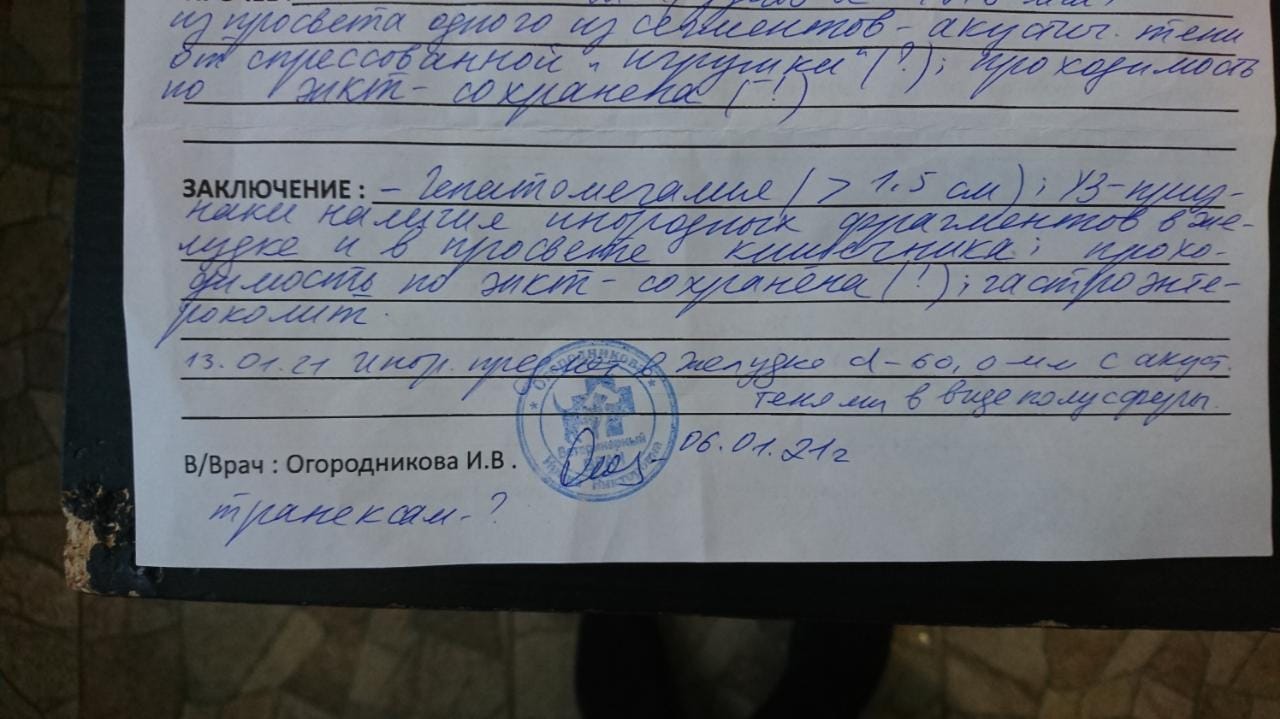 из просвета одного из сегментов - акустич. тени
от спрессованной "игрушки" (?); проходимость
по жкт - сохранена (!)
ЗАКЛЮЧЕНИЕ : - Гепатомегалия (> 1.5 см); УЗ-приз-
наки наличия инородных фрагментов в же-
лудке и в просвете кишечника; прохо-
димость по жкт - сохранена (!); гастроэнте-
роколит.
13.01.21 Инор. предмет в желудке d - 60,0 мм с акуст.
тенями в виде полусферы.
Огородникова
Ветеринарный
врач
Викторовна
06.01.21г
В/Врач : Огородникова И.В .
транексам - ?